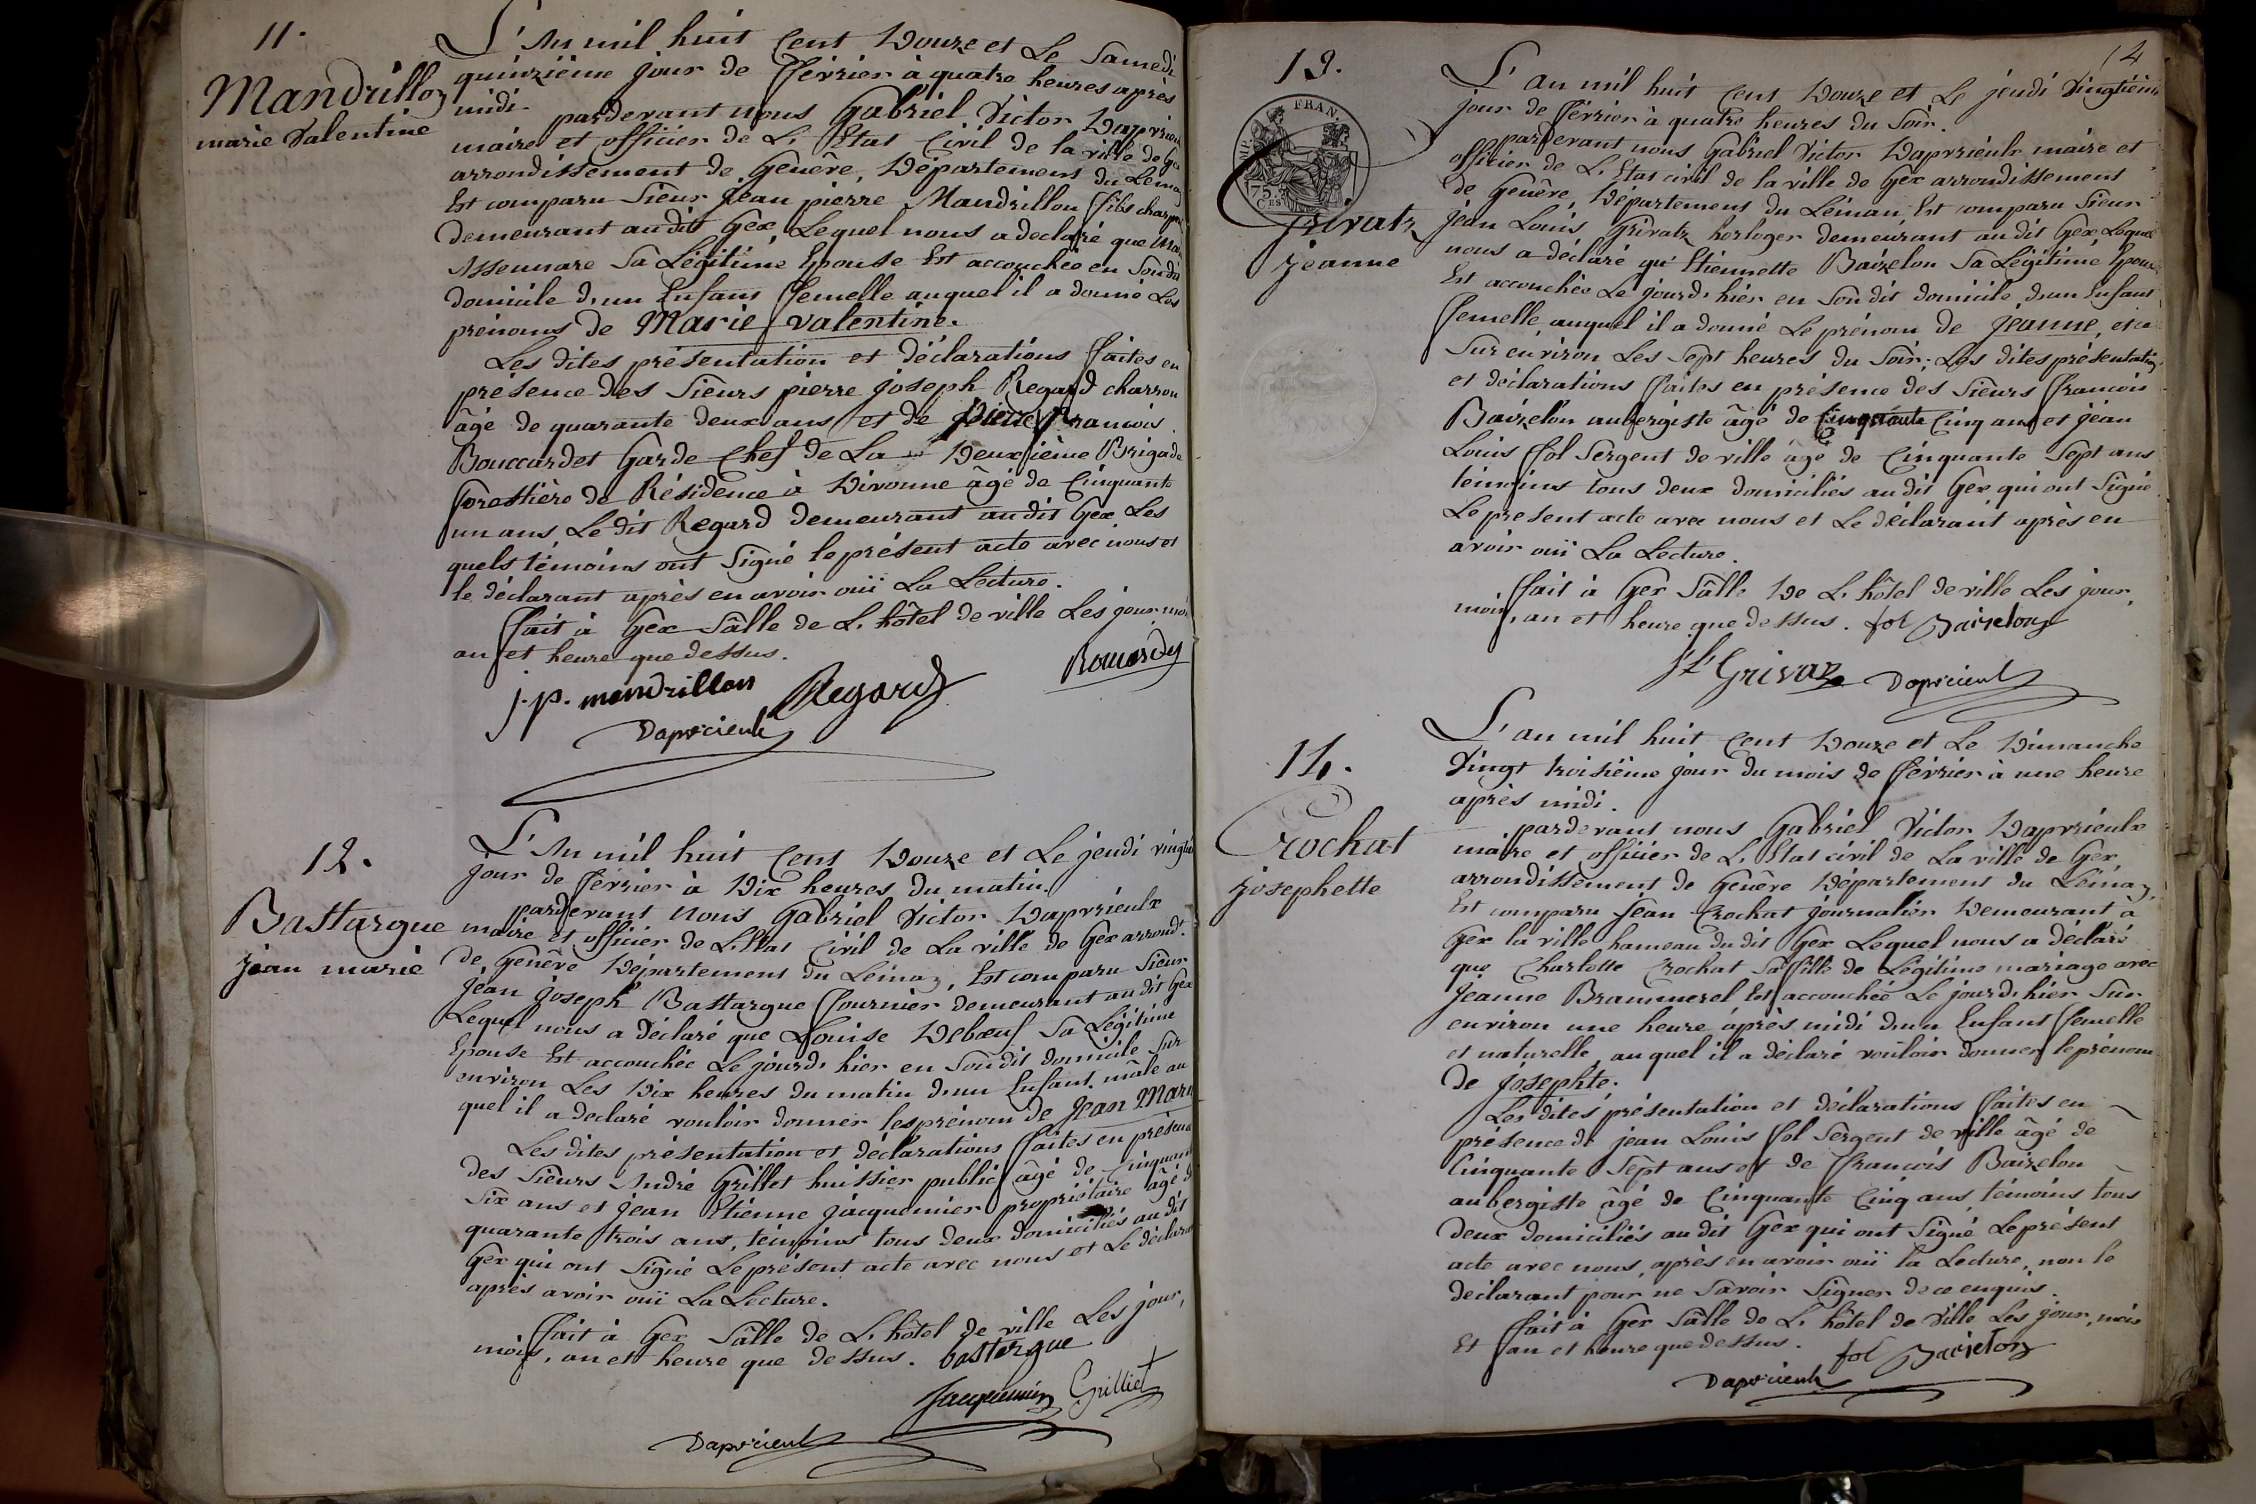 11.
Mandrillon
marie Valentine
L'An mil huit Cent Douze et Le Samedi
quinzième jour de février à quatre heures après
midi. pardevant nous Gabriel Victor
maire et officier de L. Etat Civil de la ville de Gex
arrondissement de Genêve, Département du Léman
Est comparu Sieur Jean pierre Mandrillon fils
demeurant au dit Gex, Lequel nous a declaré que
Sa Légitime Epouse Est accouchée en Son dit
domicile d'un Enfant femelle auquel il a donné Les
prénoms de Marie Valentine.
Les dites présentation et déclarations faites en
présence des Sieurs pierre joseph Regard charron
âgé de quarante deux ans et de pierre francois
Bouccardet Garde Chef de La Deuxième Brigade
forestière de Résidence à Divonne âgé de Cinquante
un ans, Le dit Regard demeurant au dit Gex, Les
quels témoins ont Signé le présent acte avec nous et
le déclarant après en avoir ouï La Lecture.
fait à Gex Sâlle de L. hôtel de ville Les jour, mois
an et heure que dessus.
j. p. mandrillon Regard
Daprcieulx
12.
Bastargue
jean marie
L'An mil huit Cent Douze et Le jeudi
jour de février à Dix heures du matin.
pardevant Nous Gabriel Victor Daprzieulx
maire et officier de L. Etat Civil de La ville de Gex arrondt.
de Genêve Département du Léman, Est comparu Sieur
jean joseph Bastargue fournier demeurant au dit Gex
Lequel nous a déclaré que Louise Deboeuf Sa Légitime
Epouse Est accouchée Le jourd. hier en Son dit domicile Sur
environ Les Dix heures du matin d'un Enfant mâle au
quel il a declaré vouloir donner les prénom de Jean Marie
Les dites présentation et déclarations faites en présence
des Sieurs André Grillet huissier public âgé de Cinquante
Six ans et jean Etienne jacquemier propriétaire âgé de
quarante trois ans, témoins tous deux domiciliés au dit
Gex qui ont Signé Le présent acte avec nous et Le déclarant
après avoir ouï La Lecture.
fait à Gex Sâlle de L. hôtel de ville Les jour,
mois, an et heure que dessus. bastargue
Jacquemier Grilliet
Daprcieulx
14
13.
FRAN.
75
CES
Grivatz
Jeanne
L'an mil huit Cent Douze et Le jeudi Vingtième
jour de février à quatre heures du Soir.
pardevant nous Gabriel Victor Daprzieulx maire et
officier de L. Etat civil de la ville de Gex arrondissement
de Genêve, Département du Léman, Est comparu Sieur
jean Louis Grivatz horloger demeurant au dit Gex, Lequel
nous a déclaré qu'Etiennette Baizelon Sa Légitime Epouse
Est accouchée Le jourd. hier en Son dit domicile d'un Enfant
femelle, auquel il a donné Le prénom de Jeanne,
Sur environ Les Sept heures du Soir; Les dites présentation
et déclarations faites en présence des Sieurs francois
Baizelon aubergiste âgé de Cinquante Cinq ans et jean
Louis fol Sergent de ville âgé de Cinquante Sept ans
témoins tous deux domiciliés au dit Gex qui ont Signé
Le présent acte avec nous et Le déclarant après en
avoir ouï La Lecture.
fait à Gex Sâlle De L. hôtel de ville Les jour,
mois, an et heure que dessus. fol Baizelon
Grivaz Daprcieulx
14.
Crochat
Josephette
L'an mil huit Cent Douze et Le Dimanche
Vingt troisième jour du mois de février à une heure
après midi.
pardevant nous Gabriel Victor Daprzieulx
maire et officier de L. Etat civil de La ville de Gex
arrondissement de Genêve Département du Léman,
Est comparu Jean Crochat journalier Demeurant à
Gex la ville hameau du dit Gex Lequel nous a déclaré
que Charlotte Crochat Sa fille de Légitime mariage avec
Jeanne Est accouchée Le jourd. hier Sur
environ une heure après midi d'un Enfant femelle
et naturelle, auquel il a déclaré vouloir donner le prénom
de josephte.
Les dites présentation et déclarations faites en
présence de jean Louis fol Sergent de ville âgé de
Cinquante Sept ans et de francois Baizelon
aubergiste âgé de Cinquante Cinq ans, témoins tous
deux domiciliés au dit Gex qui ont Signé Le présent
acte avec nous, après en avoir ouï la Lecture, non le
déclarant pour ne Savoir Signer de ce enquis.
fait à Gex Sâlle de L. hôtel de Ville Les jour, mois
Et an et heure que dessus. fol Baizelon
Daprcieulx